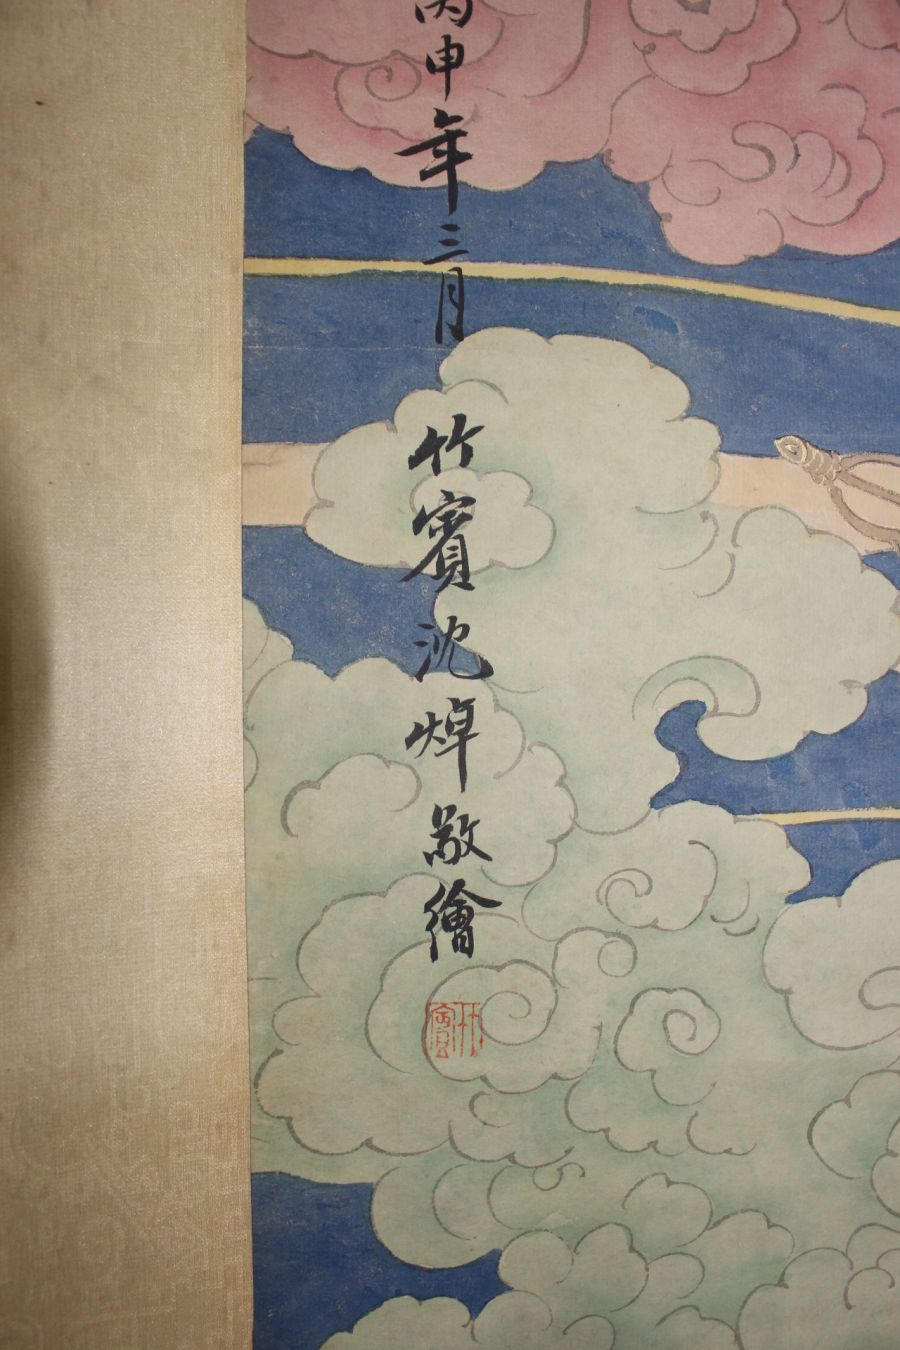 丙申年三月 竹賓沈焯敬繪
竹賓